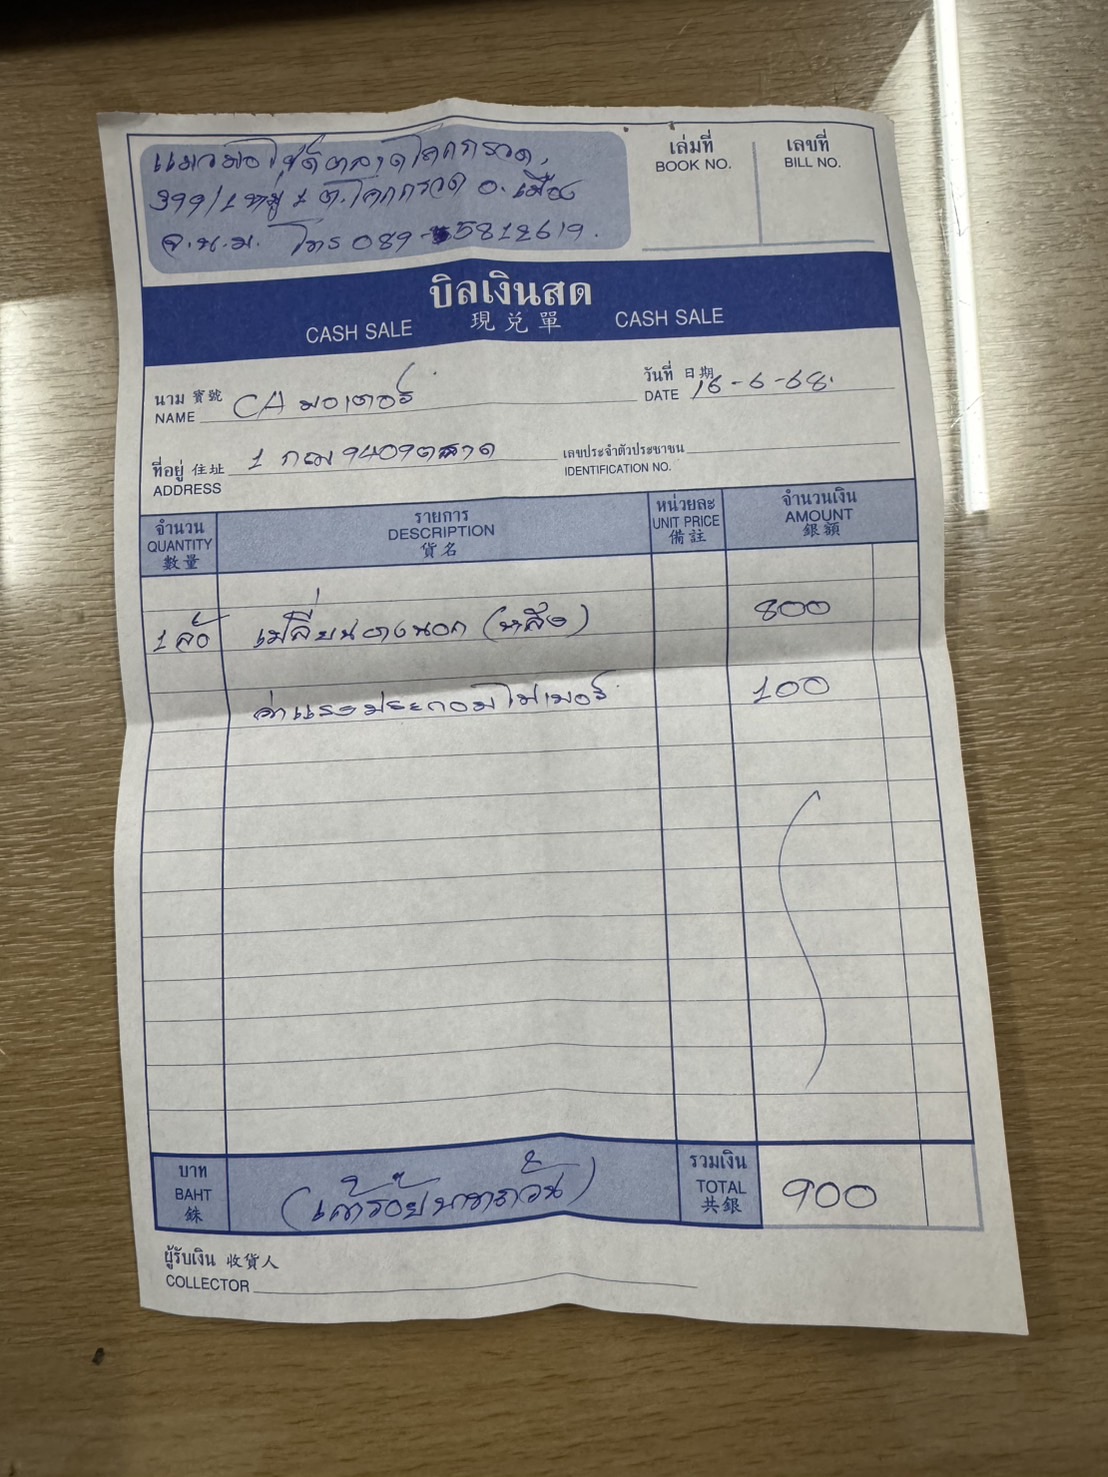 แมวมอไซด์ตลาดโคกกรวด
399/1 หมู่ 1 ต.โคกกรวด อ.เมือง
จ.น.ม. โทร 089-5812619.
เล่มที่
BOOK NO.
เลขที่
BILL NO.
บิลเงินสด
CASH SALE 現兑單 CASH SALE
นาม 寶號
NAME CA มอเตอร์
วันที่ 日期
DATE 16-6-68.
ที่อยู่ 住址 1 กฌ 9409
ADDRESS
เลขประจำตัวประชาชน
IDENTIFICATION NO.
จำนวน
QUANTITY
數量
รายการ
DESCRIPTION
貨名
หน่วยละ
UNIT PRICE
備註
จำนวนเงิน
AMOUNT
銀額
1 ล้อ เปลี่ยนยางนอก (หลัง) 800
ค่าแรงประกอบ 100
บาท
BAHT
銖
(เก้าร้อยบาทถ้วน)
รวมเงิน
TOTAL
共銀
900
ผู้รับเงิน 收貨人
COLLECTOR